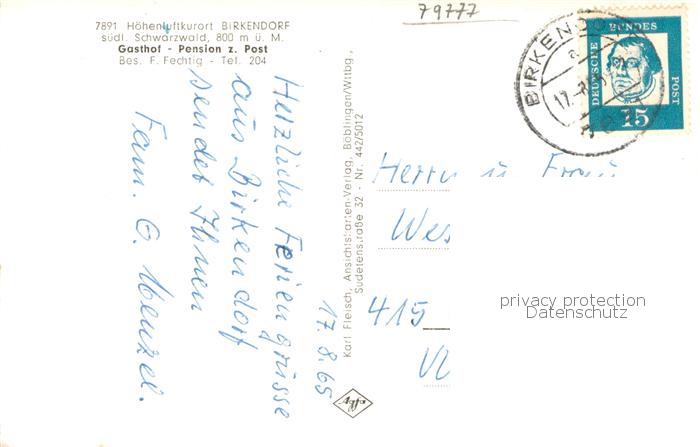 79777
7891 Höhenluftkurort BIRKENDORF
südl. Schwarzwald, 800 m ü. M.
Gasthof - Pension z. Post
Bes. F. Fechtig - Tel. 204
17.8.65
Herzliche Feriengrüsse
aus Birkendorf
sendet Ihnen
Fam. O. Menzel.
Karl Fleisch, Ansichtskarten-Verlag, Böblingen/Wttbg.,
Sudetenstraße 32 - Nr. 442/5012
Agfa
BIRKENDO
DEUTSCHE BUNDES POST
15
Herrn u Frau
Wes
415
privacy protection
Datenschutz